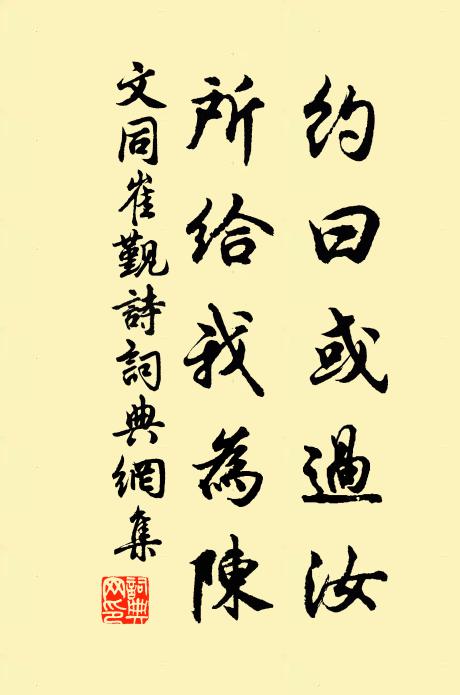 約曰或過汝
所給我為陳
文同崔覲詩詞典網集
詞典網印